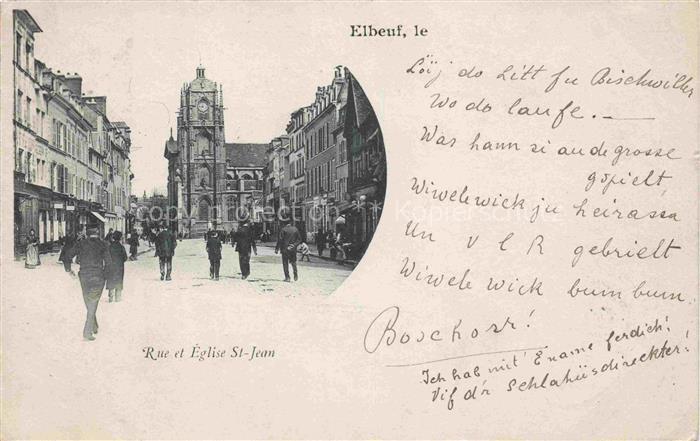 Elbeuf, le
Löij do Litt fu Bischwiller
Wo do laufe. —
Was hann si au de grosse
gspielt
Wiwelewick ju heirassa
Un V L R gebrielt
Wiwele Wick bum bum
Boschorr!
Ich hab mit' Ename ferdich!
Vif d'r Schlahüsdireckter!
Rue et Église St-Jean
copyright protected